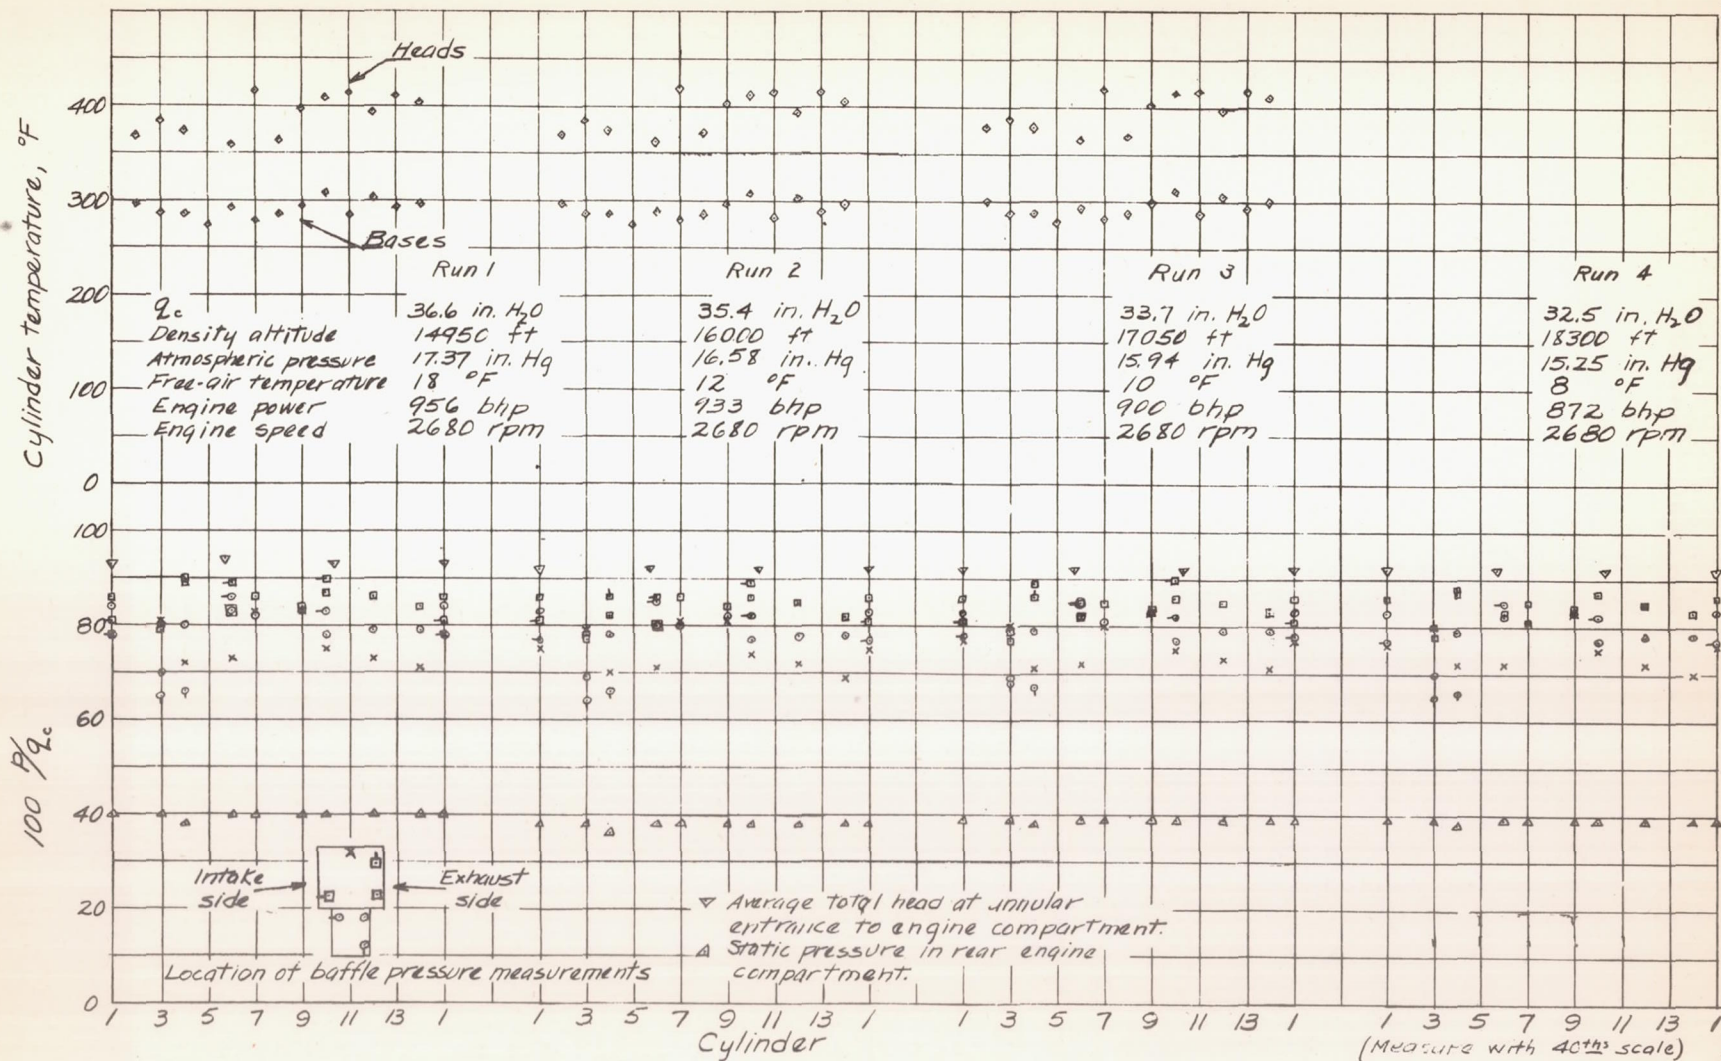 Heads
Bases
Cylinder temperature, °F
400
300
200
100
0
Run 1
Run 2
Run 3
Run 4
qc 36.6 in. H2O 35.4 in. H2O 33.7 in. H2O 32.5 in. H2O
Density altitude 14950 ft 16000 ft 17050 ft 18300 ft
Atmospheric pressure 17.37 in. Hg 16.58 in. Hg 15.94 in. Hg 15.25 in. Hg
Free-air temperature 18 °F 12 °F 10 °F 8 °F
Engine power 956 bhp 933 bhp 900 bhp 872 bhp
Engine speed 2680 rpm 2680 rpm 2680 rpm 2680 rpm
100 P/qc
100
80
60
40
20
0
Intake side
Exhaust side
Location of baffle pressure measurements
▽ Average total head at annular
entrance to engine compartment.
△ Static pressure in rear engine
compartment.
1 3 5 7 9 11 13 1 3 5 7 9 11 13 1 1 3 5 7 9 11 13 1 1 3 5 7 9 11 13 1
Cylinder
(Measure with 40ths scale)